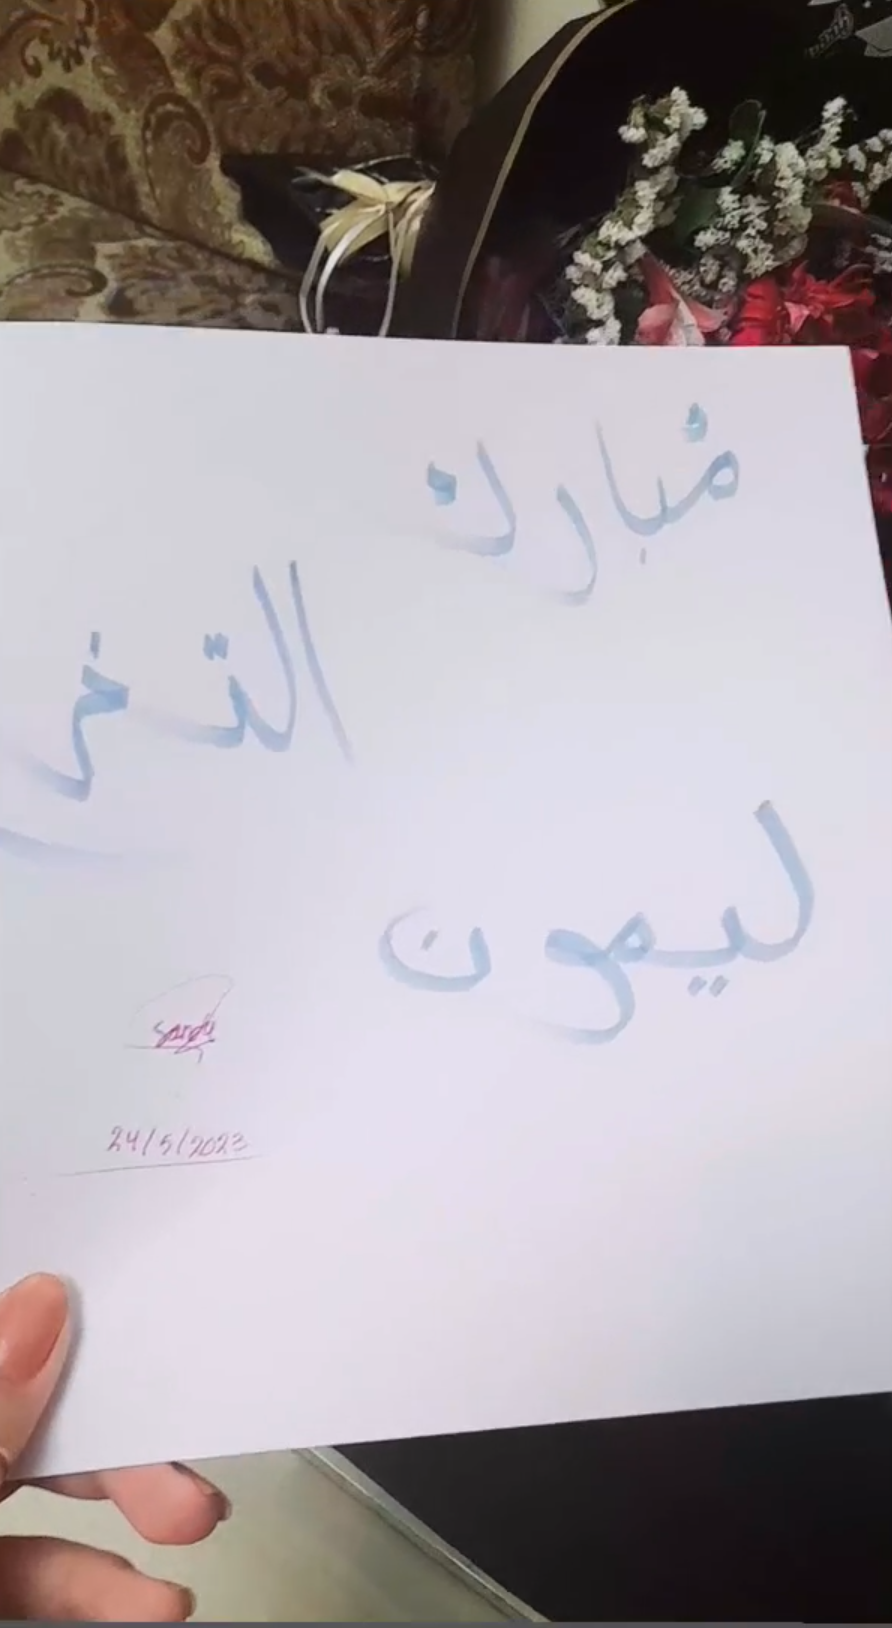 مُبارك
التخر
ليمون
Sandy
24/5/2023